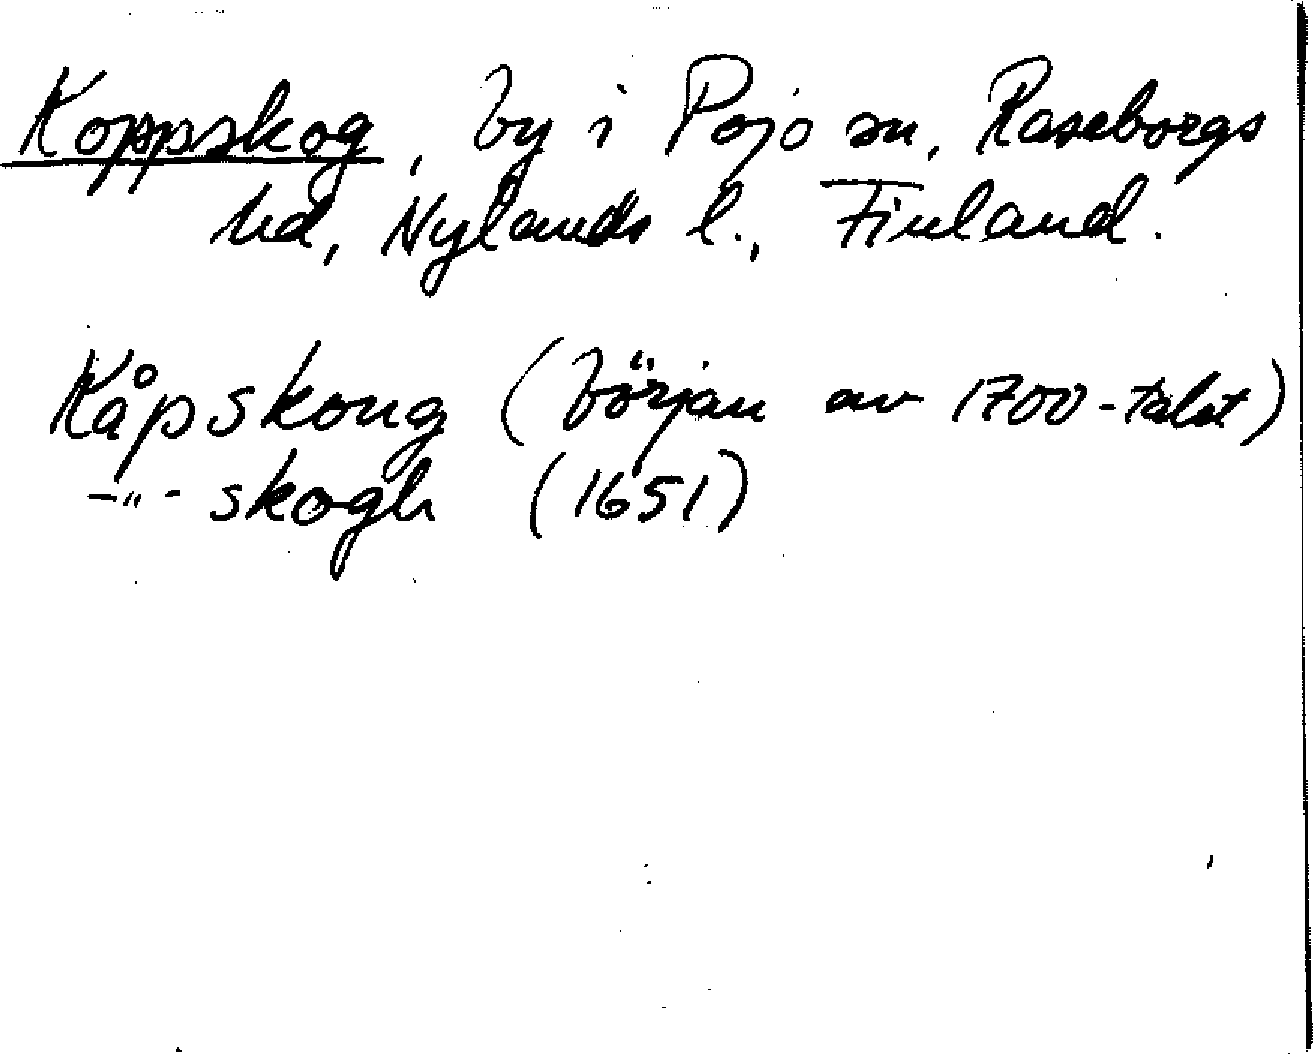 Koppskog, by i Pojo sn, Raseborgs
hd, Nylands l., Finland.
Kåpskoug (början av 1700-talet)
-"- skogh (1651)